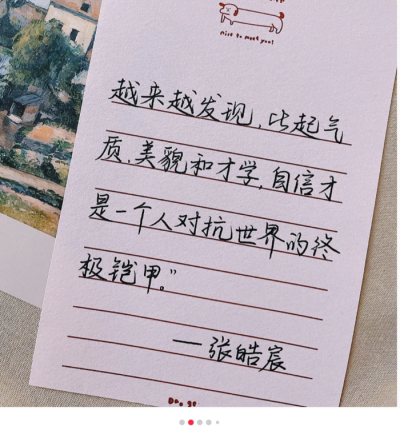 nice to meet you!
越来越发现,比起气
质,美貌和才学,自信才
是一个人对抗世界的终
极铠甲。”
—张皓宸